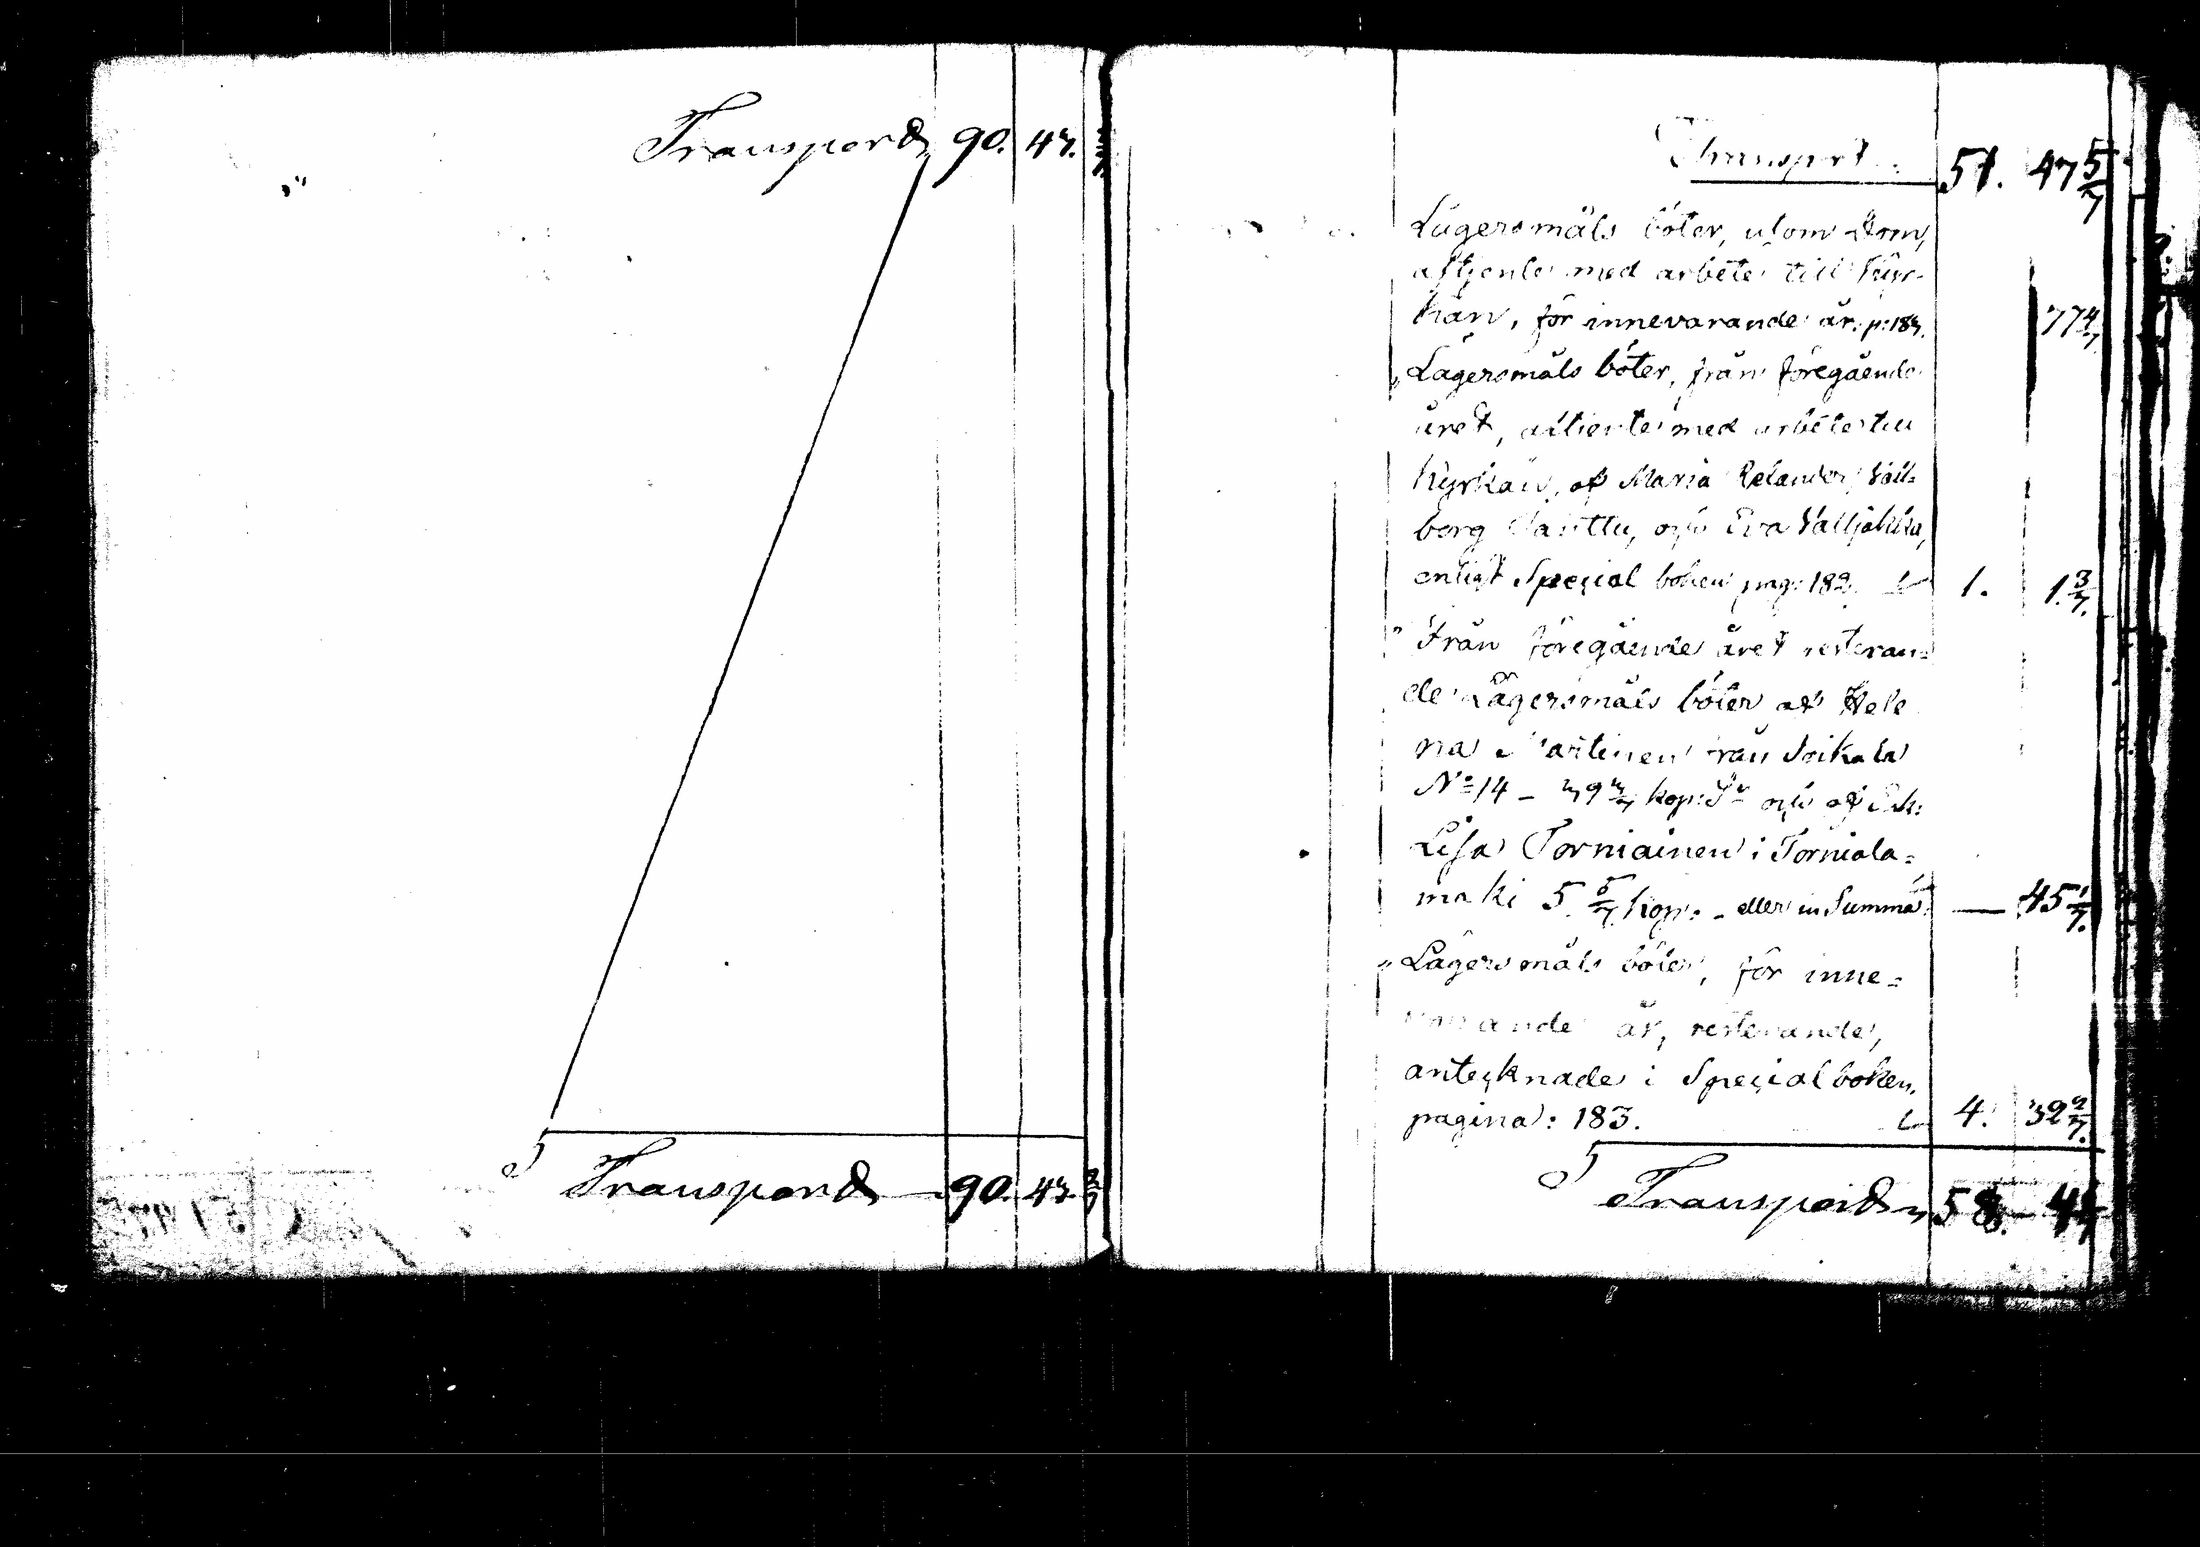 Transport 90. 43.
Transport 90. 43.
Transport 51. 47 5/7
Lägersmåls böter, utom dom,
aftjente med arbete till kyr-
kan, för innevarande år. p: 183. 77 4/7
" Lägersmåls böter, från föregående
året, aftjente med arbete till
kyrkan, af Maria Relander,
borg och Eva
enligt Special boken pag: 182. 1. 1 3/7.
" Från föregående året resteran=
de Lägersmåls böter af Hele
na Martinen från Soikala
No 14 – 39 3/7 kop: Sr och af
Lisa Torniainen i Torniala=
mäki 5 5/7 kop: – eller in Summa — 45 1/7.
" Lägersmåls böter, för inne=
varande år, resterande,
antecknade i Special boken,
pagina: 183. 4. 39 2/7.
Transport 58.